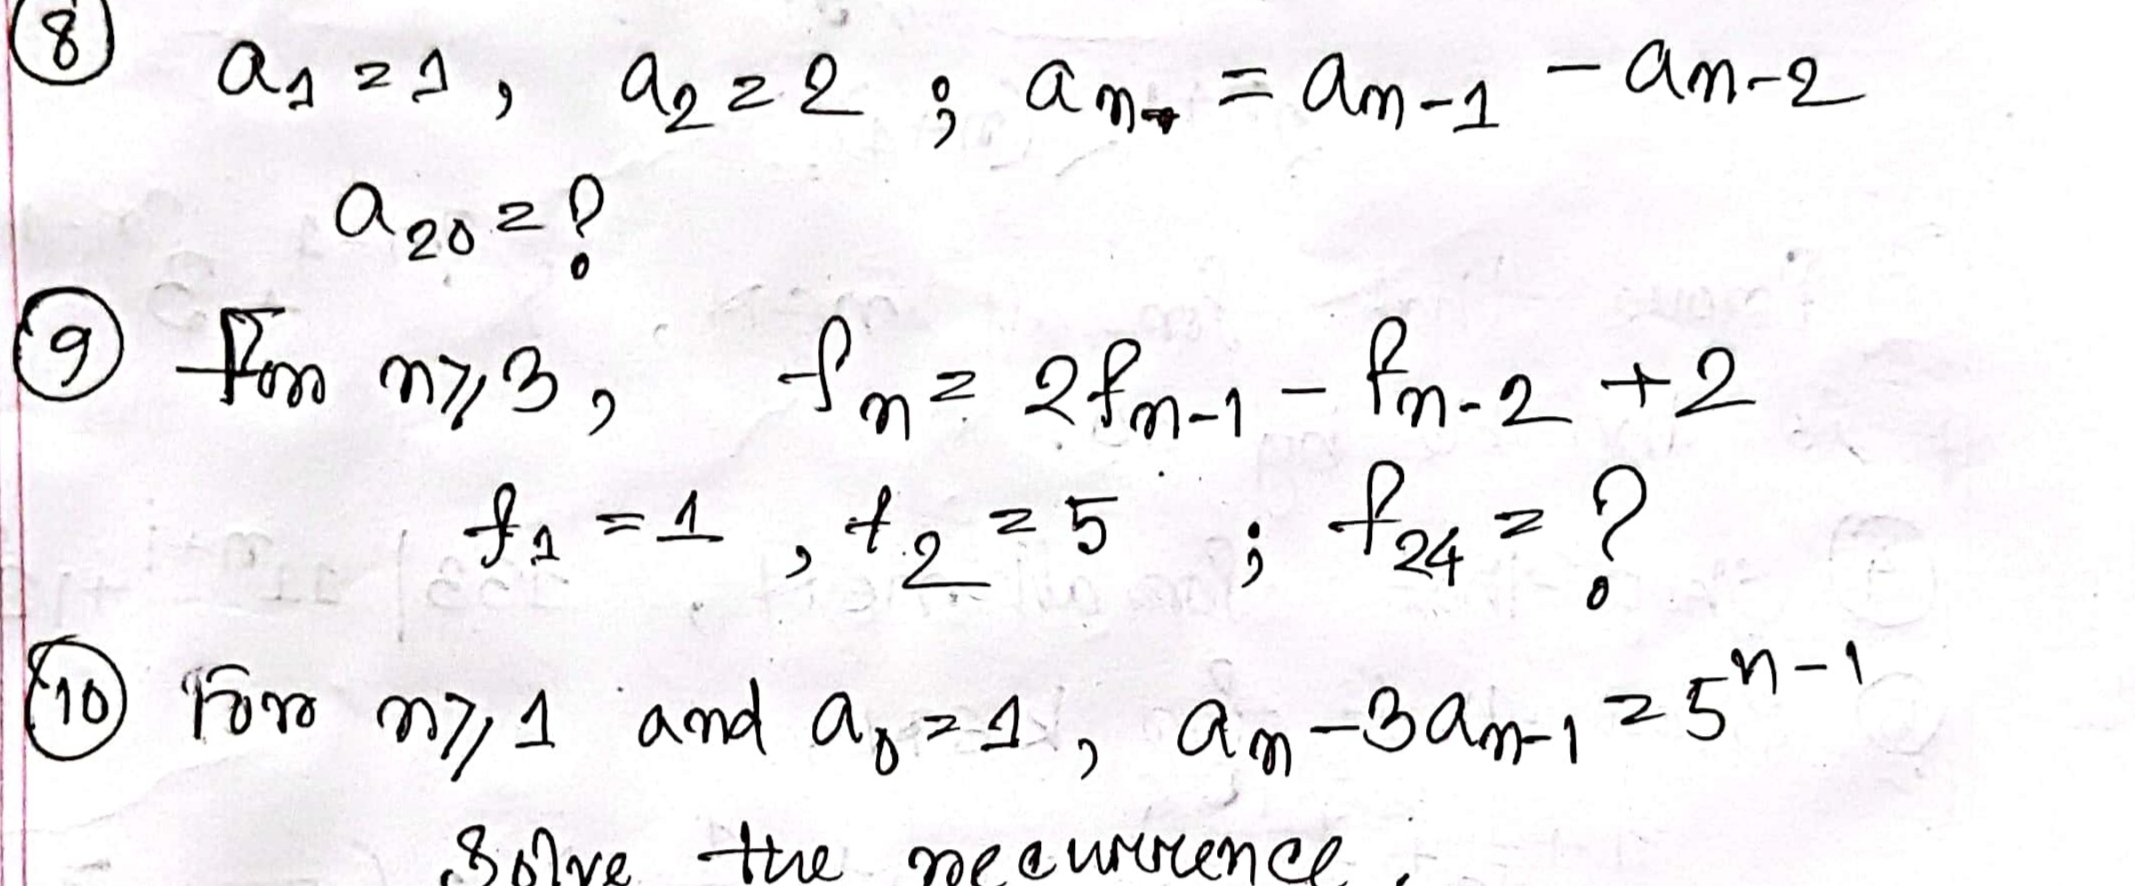 ⑧ a₁ = 1, a₂ = 2 ; aₙ = aₙ₋₁ - aₙ₋₂
a₂₀ = ?
⑨ For n ≥ 3, fₙ = 2fₙ₋₁ - fₙ₋₂ + 2
f₁ = 1, f₂ = 5 ; f₂₄ = ?
⑩ For n ≥ 1 and a₀ = 1, aₙ - 3aₙ₋₁ = 5ⁿ⁻¹
Solve the recurrence.